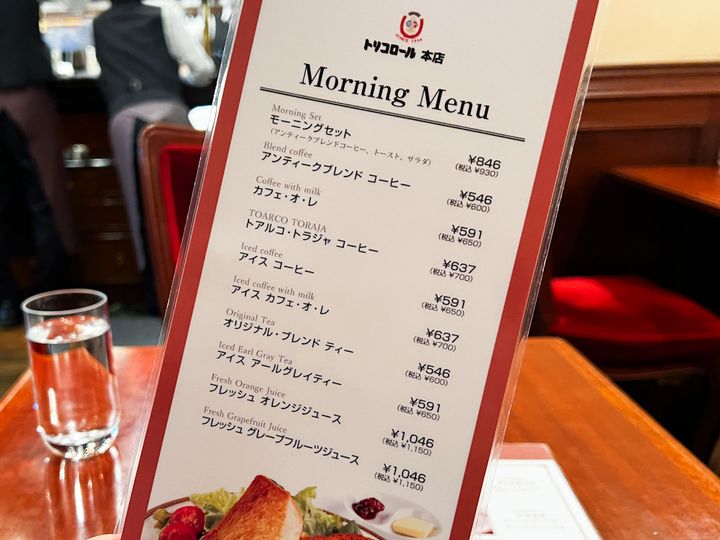 SINCE 1936
トリコロール 本店
Morning Menu
Morning Set
モーニングセット
(アンティークブレンドコーヒー、トースト、サラダ)
¥846
(税込 ¥930)
Blend coffee
アンティークブレンド コーヒー
¥546
(税込 ¥600)
Coffee with milk
カフェ・オ・レ
¥591
(税込 ¥650)
TOARCO TORAJA
トアルコ・トラジャ コーヒー
¥637
(税込 ¥700)
Iced coffee
アイス コーヒー
¥591
(税込 ¥650)
Iced coffee with milk
アイス カフェ・オ・レ
¥637
(税込 ¥700)
Original Tea
オリジナル・ブレンド ティー
¥546
(税込 ¥600)
Iced Earl Gray Tea
アイス アールグレイティー
¥591
(税込 ¥650)
Fresh Orange Juice
フレッシュ オレンジジュース
¥1,046
(税込 ¥1,150)
Fresh Grapefruit Juice
フレッシュ グレープフルーツジュース
¥1,046
(税込 ¥1,150)